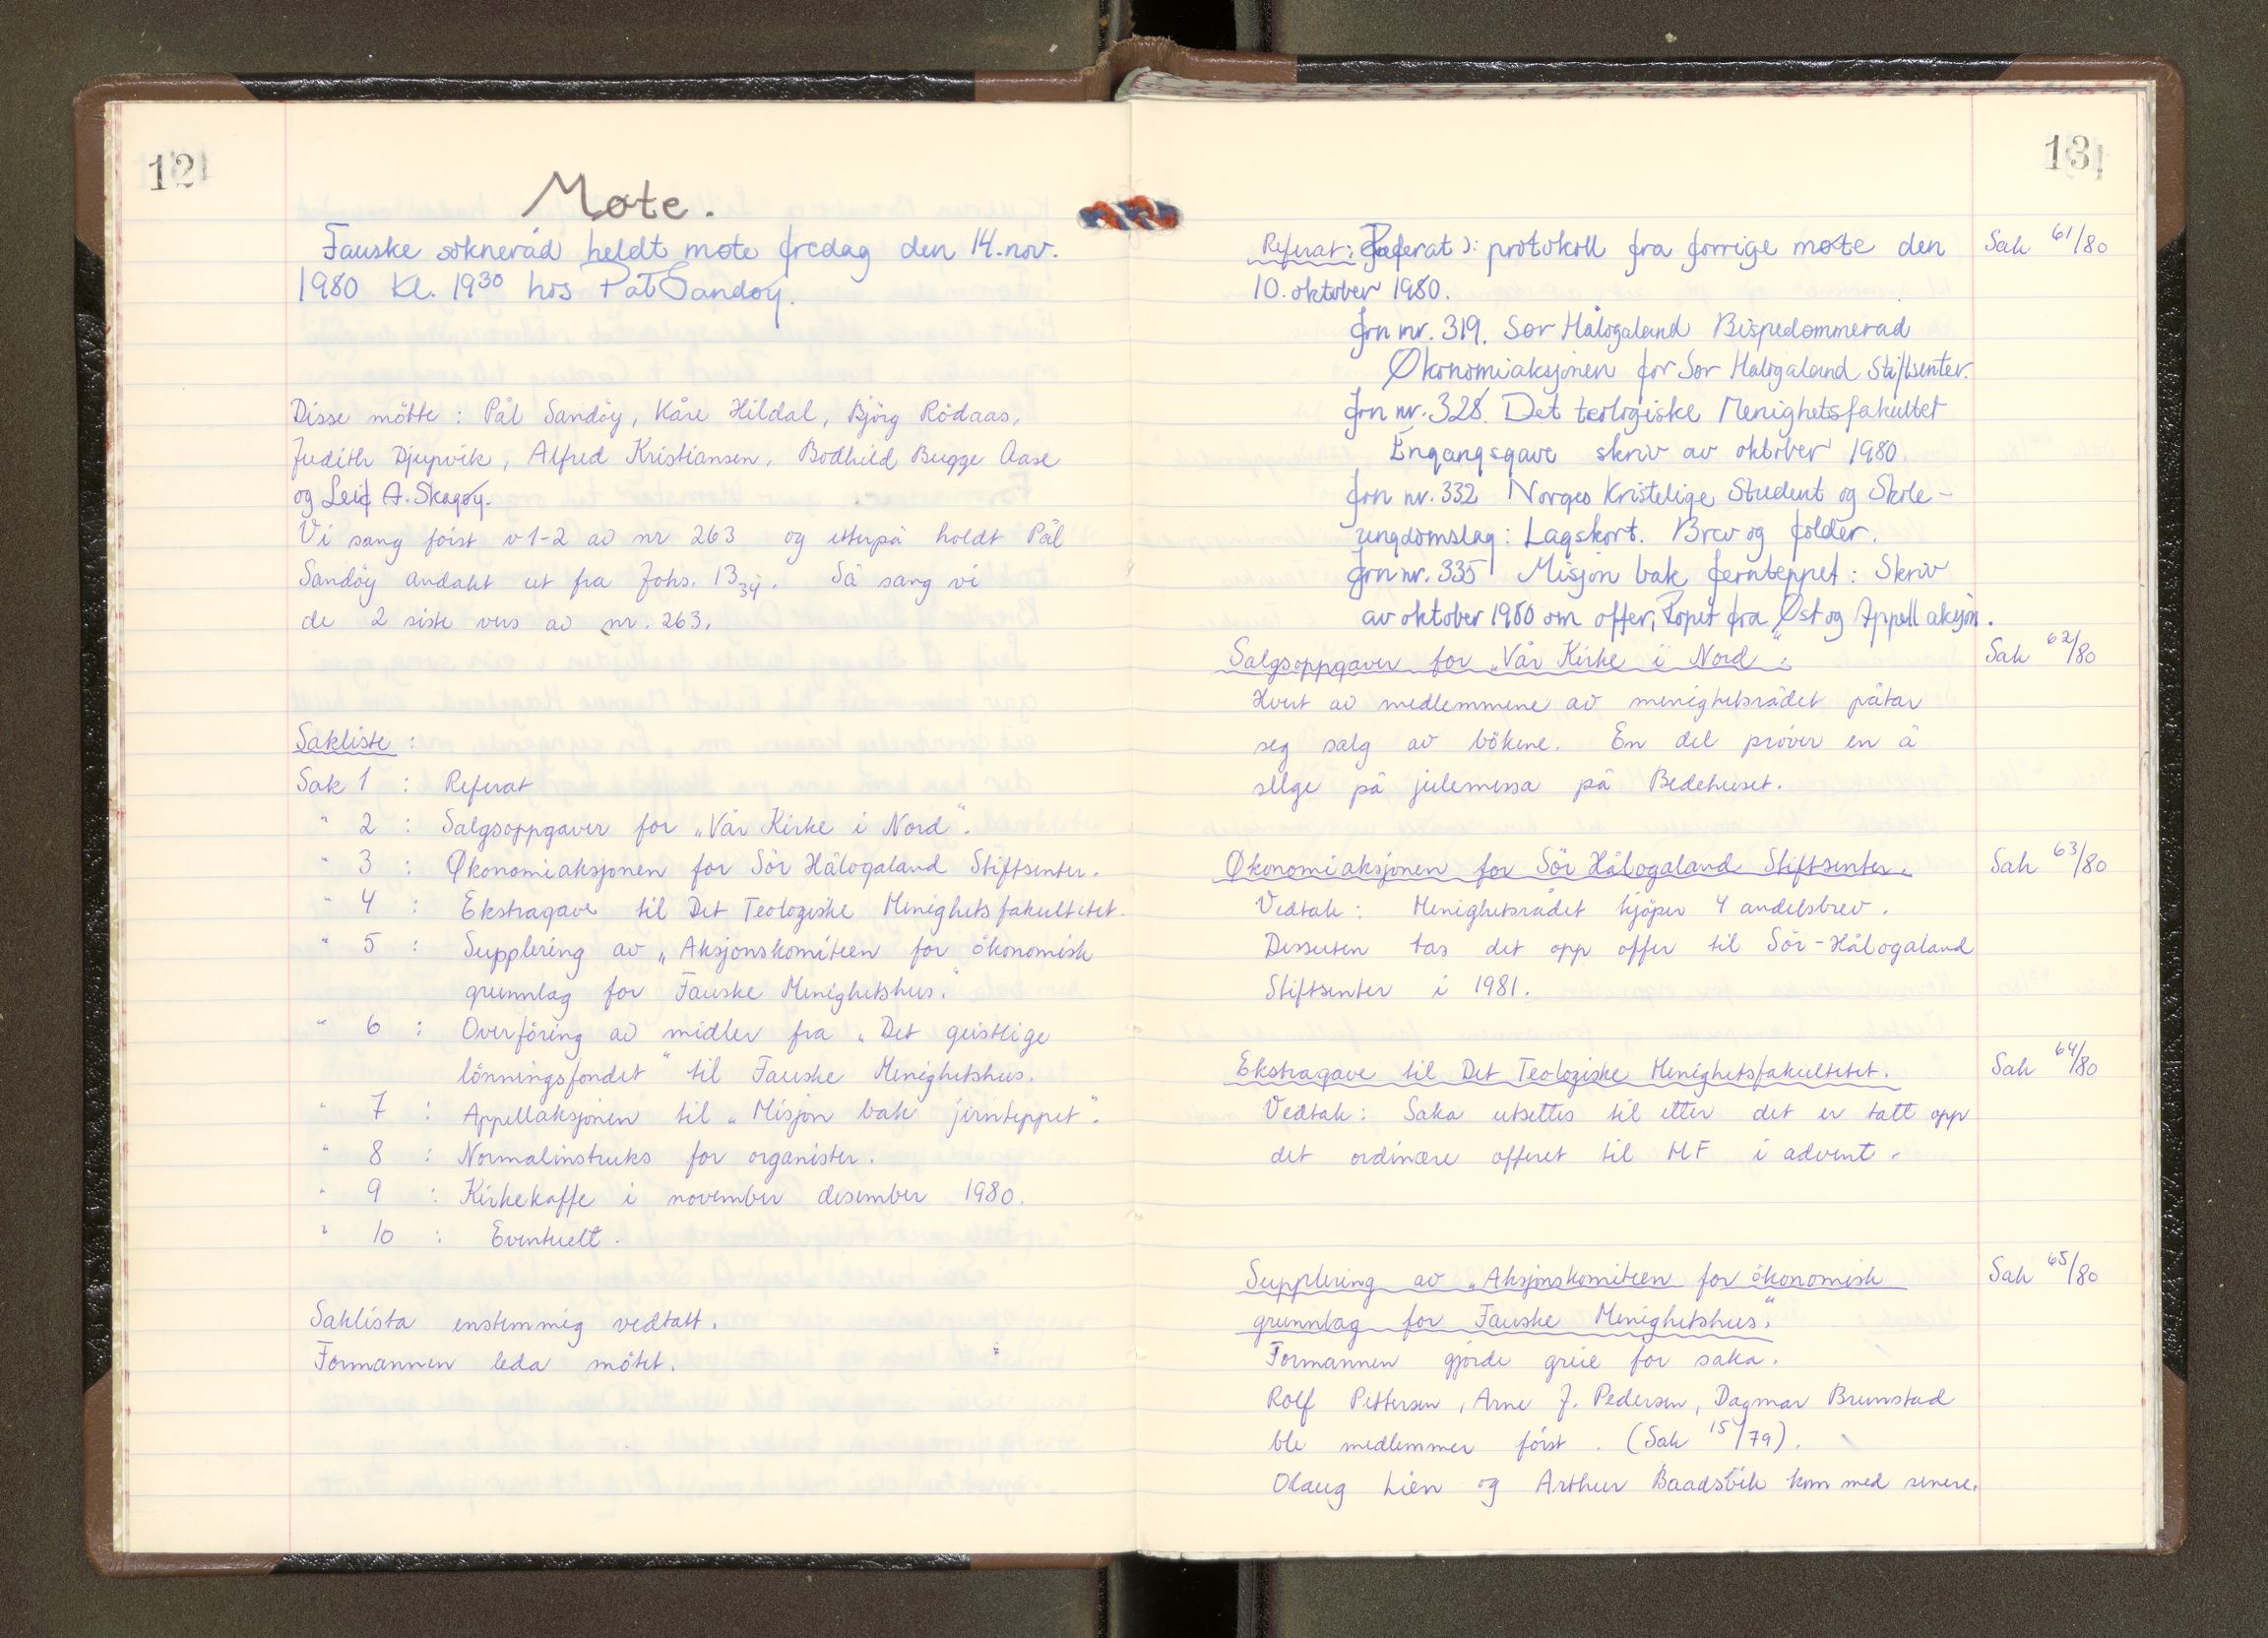 12
Møte.
Fauske sokneråd heldt møte fredag den 14. nov.
1980 kl. 19³⁰ hos Pål Sandøy.
Disse mötte : Pål Sandöy, Kåre Hildal, Björg Rödaas,
Judith Djupvik, Alfred Kristiansen, Bodhild Bugge Aase
og Leif A. Skagøy.
Vi sang först v 1-2 av nr 263 og etterpå holdt Pål
Sandöy andakt ut fra Johs. 13₃₄. Så sang vi
de 2 siste vers av nr. 263.
Sakliste :
Sak 1 : Referat
" 2 : Salgsoppgaver for „Vår Kirke i Nord".
" 3 : Økonomiaksjonen for Sör Hålogaland Stiftsenter.
" 4 : Ekstragave til Det Teologiske Menighetsfakultetet.
" 5 : Supplering av „Aksjonskomiteen for ökonomisk
grunnlag for Fauske Menighetshus."
" 6 : Overföring av midler fra „Det geistlige
lönningsfondet" til Fauske Menighetshus.
" 7 : Appellaksjonen til „Misjon bak jernteppet".
" 8 : Normalinstruks for organister.
" 9 : Kirkekaffe i november desember 1980.
" 10 : Eventuelt.
Saklista enstemmig vedtatt.
Formannen leda mötet.
13
Referat: Referat ): protokoll fra forrige møte den Sak 61/80
10. oktober 1980.
Jrn nr. 319. Sør Hålogaland Bispedømmeråd
Økonomiaksjonen for Sør Hålogaland Stiftsenter.
Jrn nr. 328. Det teologiske Menighetsfakultet
Engangsgave skriv av oktober 1980
Jrn nr. 332 Norges Kristelige Student og Skole-
ungdomslag: Lagskort. Brev og folder.
Jrn nr. 335 Misjon bak Jernteppet : Skriv
av oktober 1980 om offer, Ropet fra Øst og Appell aksjon.
Salgsoppgaver for „Vår Kirke i Nord". Sak 62/80
Hvert av medlemmene av menighetsrådet påtar
seg salg av bökene. En del pröver en å
selge på julemessa på Bedehuset.
Økonomiaksjonen for Sör Hålogaland Stiftsenter. Sak 63/80
Vedtak : Menighetsrådet kjöper 4 andelsbrev.
Dessuten tas det opp offer til Sör-Hålogaland
Stiftsenter i 1981.
Ekstragave til Det Teologiske Menighetsfakultetet. Sak 64/80
Vedtak : Saka utsettes til etter det er tatt opp
det ordinære offeret til MF i advent.
Supplering av „Aksjonskomiteen for ökonomisk Sak 65/80
grunnlag for Fauske Menighetshus."
Formannen gjorde greie for saka.
Rolf Pettersen, Arne J. Pedersen, Dagmar Brunstad
ble medlemmer först. (Sak 15/79).
Olaug Lien og Arthur Baadsvik kom med senere.